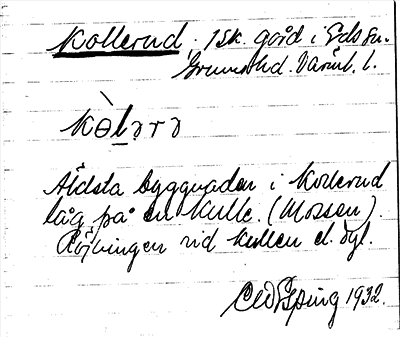 Kollerud, 1 sk. gård i Eds sn.
Grums hd. Värml. l.
kɵ̀lərə
Äldsta byggnaden i Kollerud
låg på en kulle. (Mossen).
Röjningen vid kullen el. dyl.
1932.